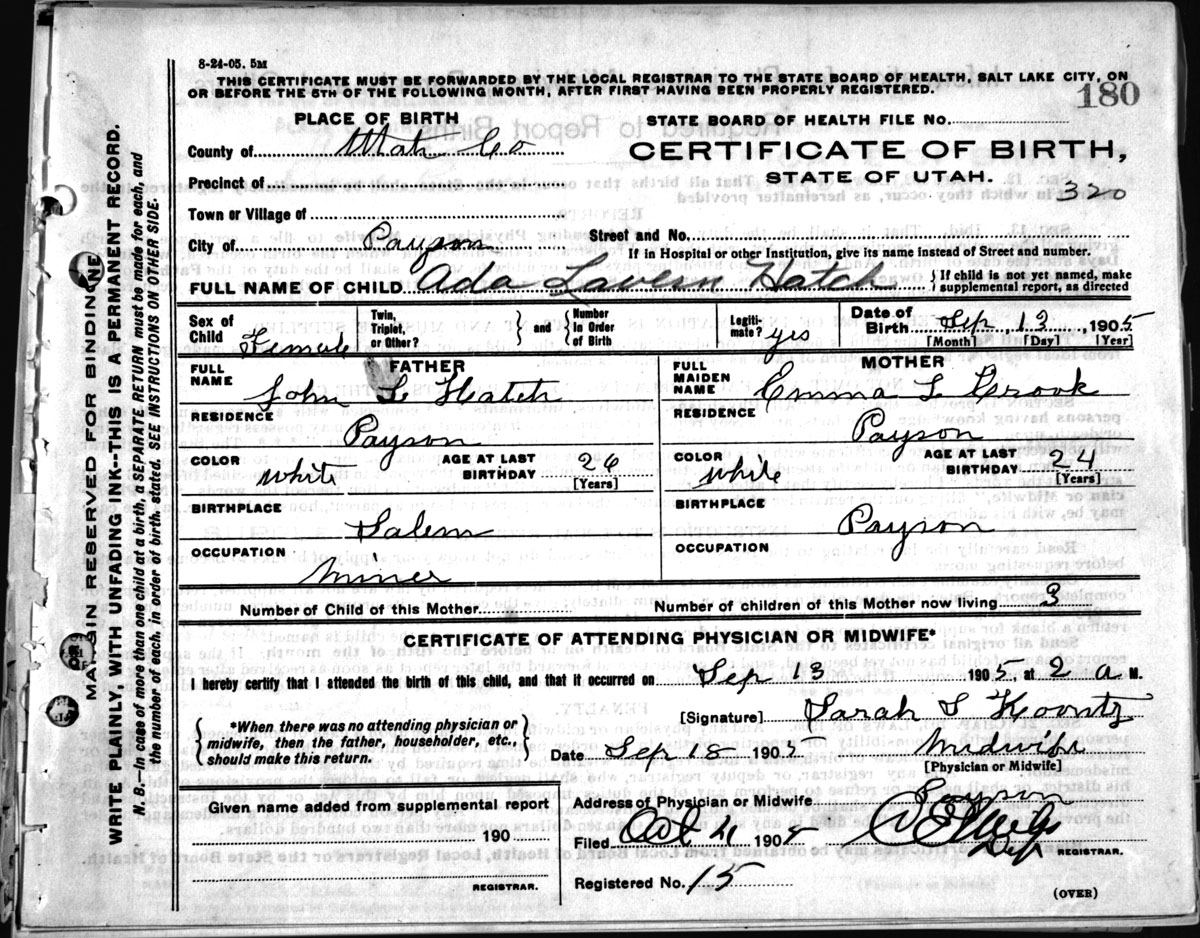 8-24-05. 5M
THIS CERTIFICATE MUST BE FORWARDED BY THE LOCAL REGISTRAR TO THE STATE BOARD OF HEALTH, SALT LAKE CITY, ON
OR BEFORE THE 5TH OF THE FOLLOWING MONTH, AFTER FIRST HAVING BEEN PROPERLY REGISTERED.
180
PLACE OF BIRTH
STATE BOARD OF HEALTH FILE NO.
County of Utah Co
CERTIFICATE OF BIRTH,
STATE OF UTAH.
Precinct of
320
Town or Village of
City of Payson
Street and No.
If in Hospital or other Institution, give its name instead of Street and number.
FULL NAME OF CHILD Ada Lavern Hatch
{ If child is not yet named, make
supplemental report, as directed
Sex of Child Female
Twin, Triplet, or Other? } and { Number in Order of Birth
Legiti-mate? yes
Date of Birth Sep 13, 1905
[Month] [Day] [Year]
FATHER
MOTHER
FULL NAME John L Hatch
FULL MAIDEN NAME Emma L Brook
RESIDENCE
RESIDENCE
Payson
Payson
COLOR white
AGE AT LAST BIRTHDAY 26 [Years]
COLOR white
AGE AT LAST BIRTHDAY 24 [Years]
BIRTHPLACE
Salem
BIRTHPLACE
Payson
OCCUPATION
Miner
OCCUPATION
Number of Child of this Mother
Number of children of this Mother now living 3
CERTIFICATE OF ATTENDING PHYSICIAN OR MIDWIFE*
I hereby certify that I attended the birth of this child, and that it occurred on Sep 13 1905, at 2 a M.
{ *When there was no attending physician or
midwife, then the father, householder, etc.,
should make this return. }
[Signature] Sarah S Koontz
Date Sep 18 1905
Midwife
[Physician or Midwife]
Given name added from supplemental report
190
REGISTRAR.
Address of Physician or Midwife Payson
Filed Oct 4 1905
Dep REGISTRAR.
Registered No. 15
(OVER)
MARGIN RESERVED FOR BINDING
WRITE PLAINLY, WITH UNFADING INK--THIS IS A PERMANENT RECORD.
N. B.--In case of more than one child at a birth, a SEPARATE RETURN must be made for each, and
the number of each, in order of birth, stated. SEE INSTRUCTIONS ON OTHER SIDE.